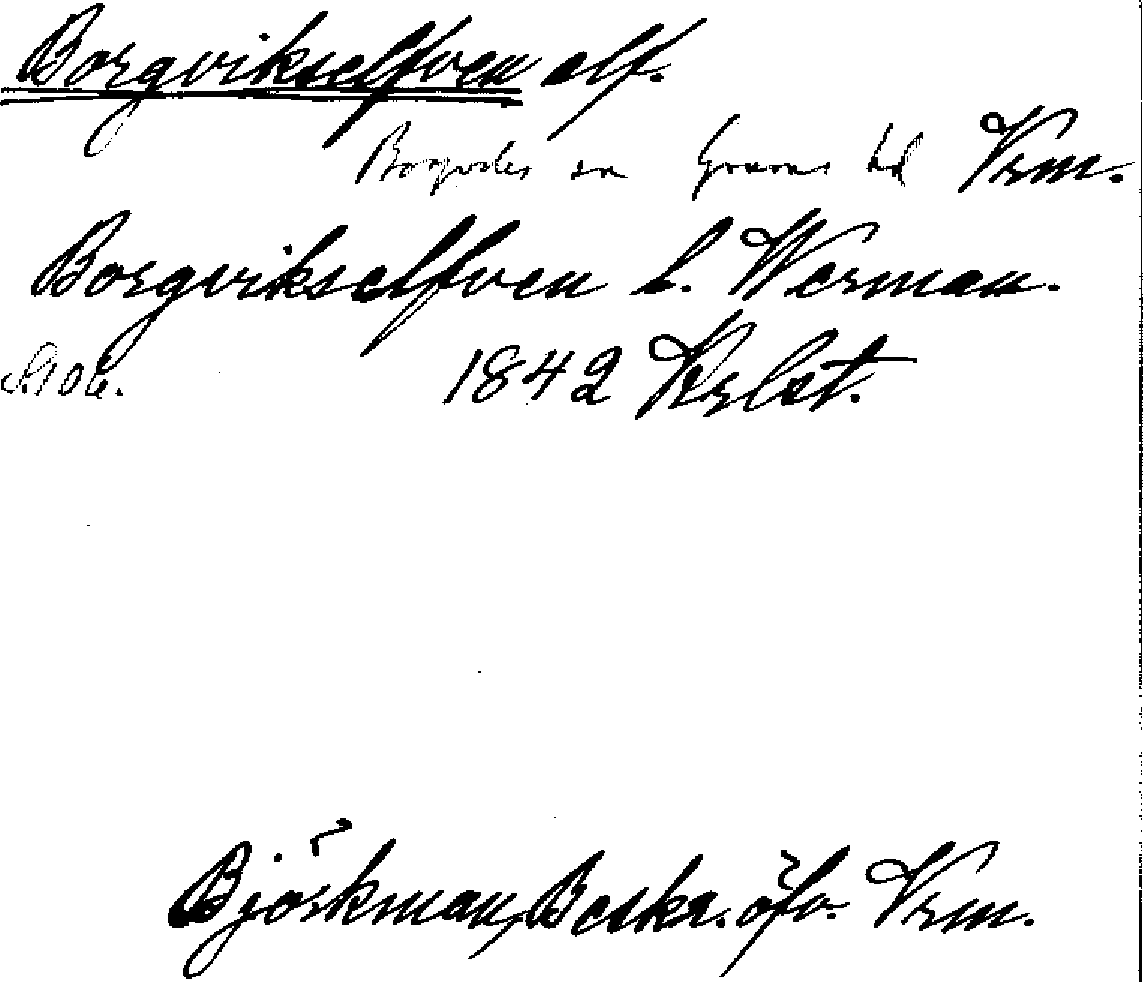 Borgvikselfven elf.
Borgviks sn Grums hd Vrm.
Borgvikselfven h. Werman.
S. 106. 1842 Krlst.
Björkman, Beskr. öfv. Vrm.